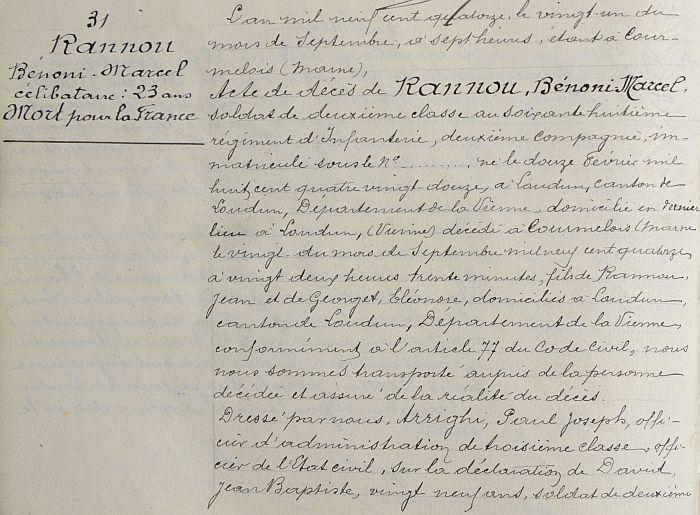 31
Rannou
Bénoni-Marcel
célibataire : 23 ans
Mort pour la France
L'an mil neuf cent quatorze, le vingt-un du
mois de Septembre, à sept heures, étant à Cour-
melois (Marne),
Acte de décès de Rannou, Bénoni Marcel,
soldat de deuxième classe au soixante huitième
régiment d'Infanterie, deuxième compagnie, im-
matriculé sous le N° .......... né le douze Février mil
huit cent quatre vingt douze, à Loudun, canton de
Loudun, Département de la Vienne, domicilié en dernier
lieu à Loudun, (Vienne) décédé à Courmelois (Marne
le vingt du mois de Septembre mil neuf cent quatorze
à vingt deux heures trente minutes, fils de Rannou,
Jean et de Georget, Eléonore, domiciliés à Loudun,
canton de Loudun, Département de la Vienne,
conformément à l'article 77 du Code Civil, nous
nous sommes transporté auprès de la personne
décédée et assuré de la réalité du décès.
Dressé par nous, Arrighi, Paul Joseph, offi-
cier d'administration de troisième classe, offi-
cier de l'Etat civil, sur la déclaration de David,
Jean Baptiste, vingt neuf ans, soldat de deuxième